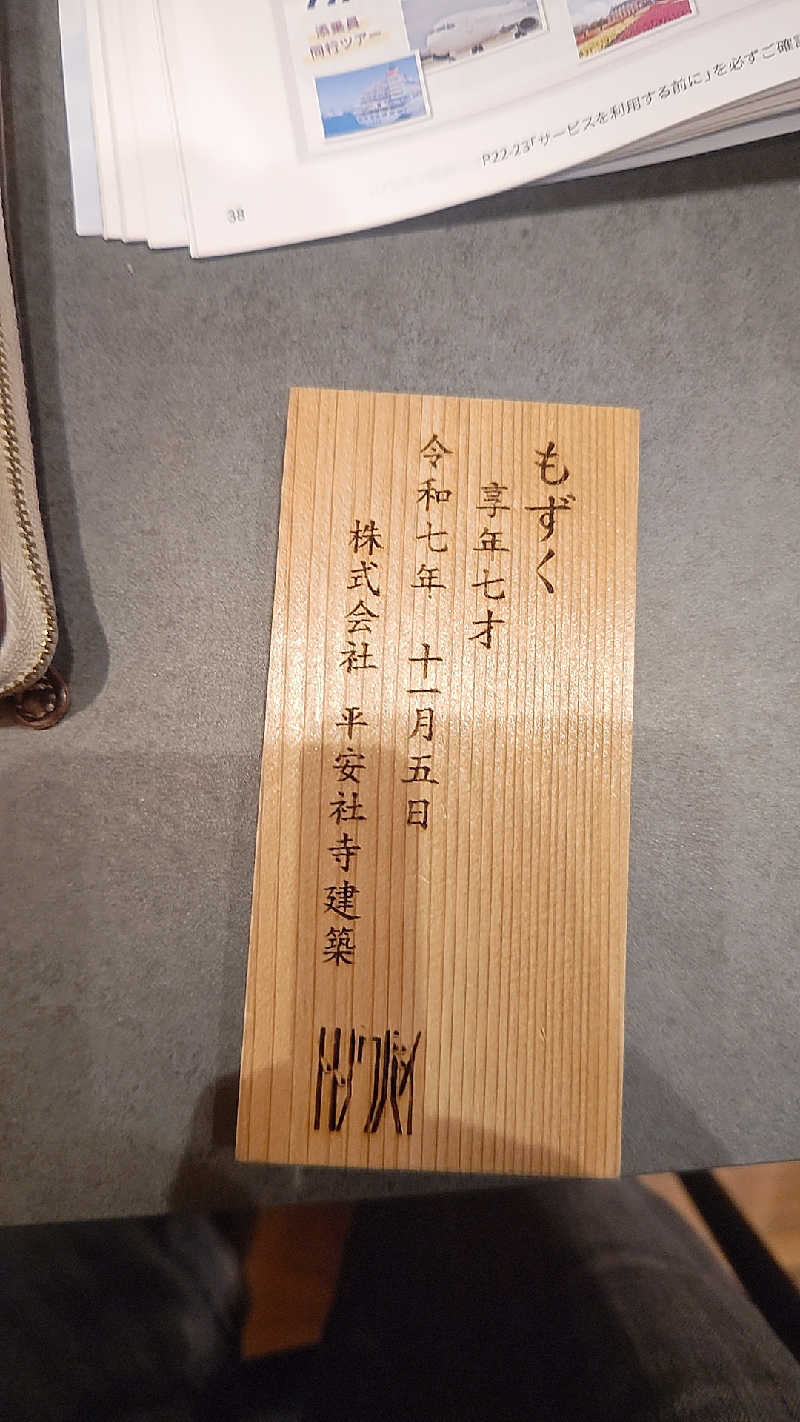 添乗員
同行ツアー
P22-23「サービスを利用する前に」を必ずご確認
38
もずく
享年七才
令和七年 十一月五日
株式会社 平安社寺建築